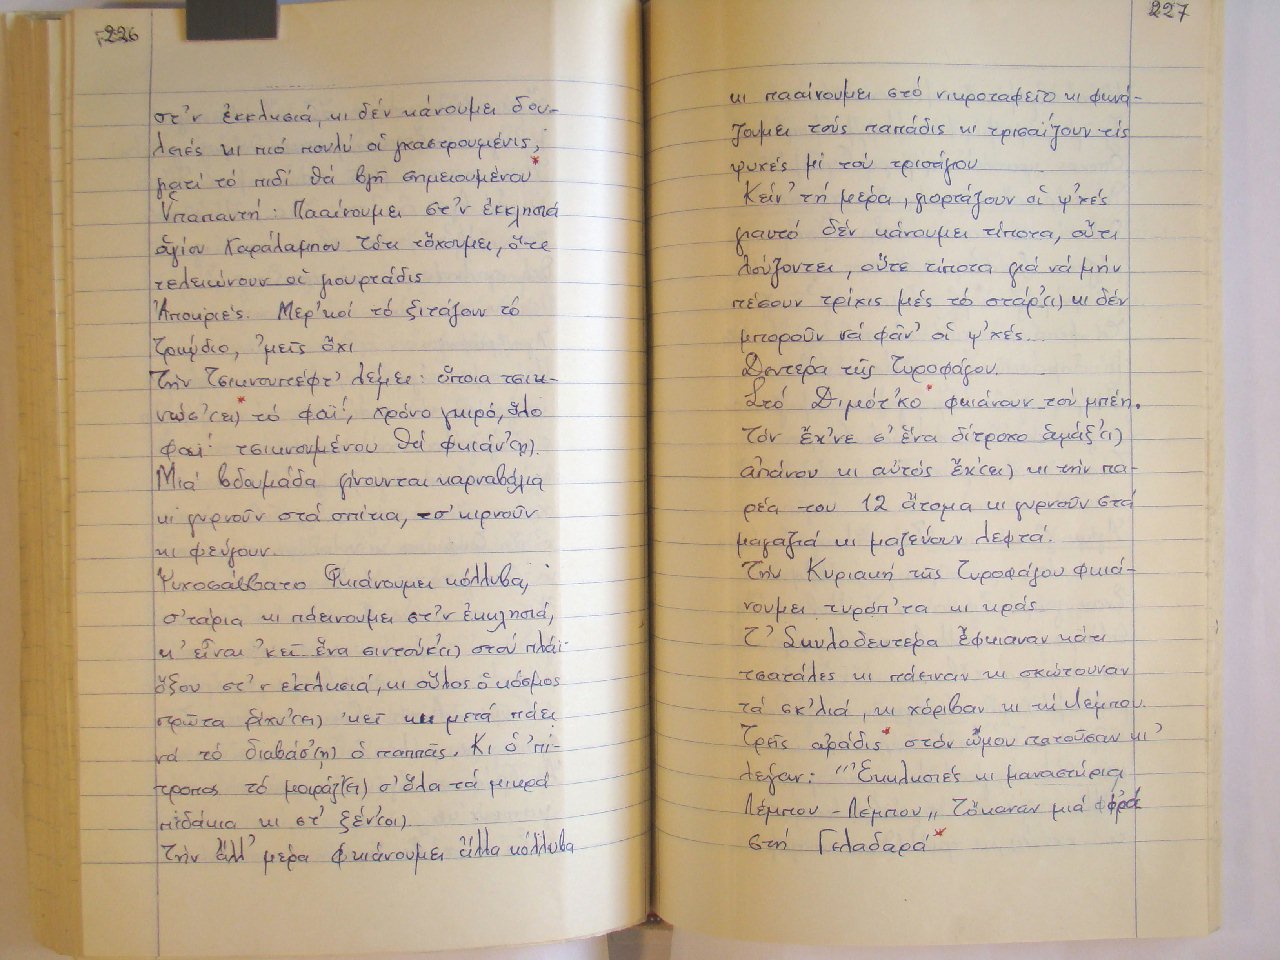 226
στ'ν ἐκκλησιά, κι δέν κάνουμει δου-
λειές κι πιό πουλύ οἱ γκαστρουμένις,
γιατί τό πιδί θά βγῆ σημειουμένου*
Ὑπαπαντή: Πααίνουμει στ'ν ἐκκλησιά
ἁγίου Χαράλαμπου τότι τὄχουμει, ὅτε
τελειώνουν οἱ γιουρτάδις
Ἀποκριές. Μερ'κοί τό ξιτάζουν τό
ζακόνιο, 'μεῖς ὄχι
Τήν Τσικνουπέφτ' λέμει: ὅποια τσικ-
νώσ'(ει)* τό φαΐ, χρόνο γκιρό, ὅλο
φαΐ τσικνουμένου θά φκιάν'(η).
Μιά βδουμάδα γίνουνται καρναβάλια
κι γυρνοῦν στά σπίτια, τσ' κιρνοῦν
κι φεύγουν.
Ψυχοσάββατο Φκιάνουμει κόλλυβα,
σ'τάρια κι πάεινουμει στ'ν ἐκκλησιά,
κ' εἶναι 'κεῖ ἕνα σιντούκ(ι) στού πλάϊ
ὄξου στ'ν ἐκκλησιά, κι οὗλος ὁ κόσμος
πρῶτα ρίχν'(ει) 'κεῖ κι μετά πάει
νά τό διαβάσ'(η) ὁ παππᾶς. Κι ὁ 'πί-
τροπος τό μοιράζ'(ει) σ' ὅλα τά μικρά
πιδάκια κι στ' ξέν'(οι).
Τήν ἄλλ' μέρα φκιάνουμει ἄλλα κόλλυβα
227
κι πααίνουμει στό νικροταφεῖο κι φωνά-
ζουμει τούς παπάδις κι τρισαΐζουν τίς
ψυχές μί τού τρισάγιου
Κείν' τή μέρα, γιορτάζουν οἱ ψ'χές
γιαυτό δέν κάνουμει τίποτα, οὔτι
λούζοντει, οὔτε τίποτα γιά νά μήν
πέσουν τρίχις μές τό στάρ'(ι) κι δέν
μποροῦν νά φᾶν' οἱ ψ'χές...
Δευτέρα τῆς Τυροφάγου.
Στό Διμότ'κο* φκιάνουν τού μπέη.
Τόν ἔχ'νε σ' ἕνα δίτροχο ἁμάξ'(ι)
ἀπάνου κι αὐτός ἔχ(ει) κι τήν πα-
ρέα του 12 ἄτομα κι γυρνοῦν στά
μαγαζιά κι μαζεύουν λεφτά.
Τήν Κυριακή τῆς Τυροφάγου φκιά-
νουμει τυρόπ'τα κι κράς
Τ' Σκυλοδευτέρα ἔφκιαναν κάτι
τσατάλες κι πάειναν κι σκώτουναν
τά σκ'λιά, κι χόριβαν κι τή Λέμπου.
Τρεῖς ἀράδις* στόν ὦμου πατοῦσαν κι'
λέγαν: "'Εκκλησιές κι μαναστήρια
Λέμπου - Λέμπου" Τὄκαναν μιά φρά
στή Γελαδαρά*